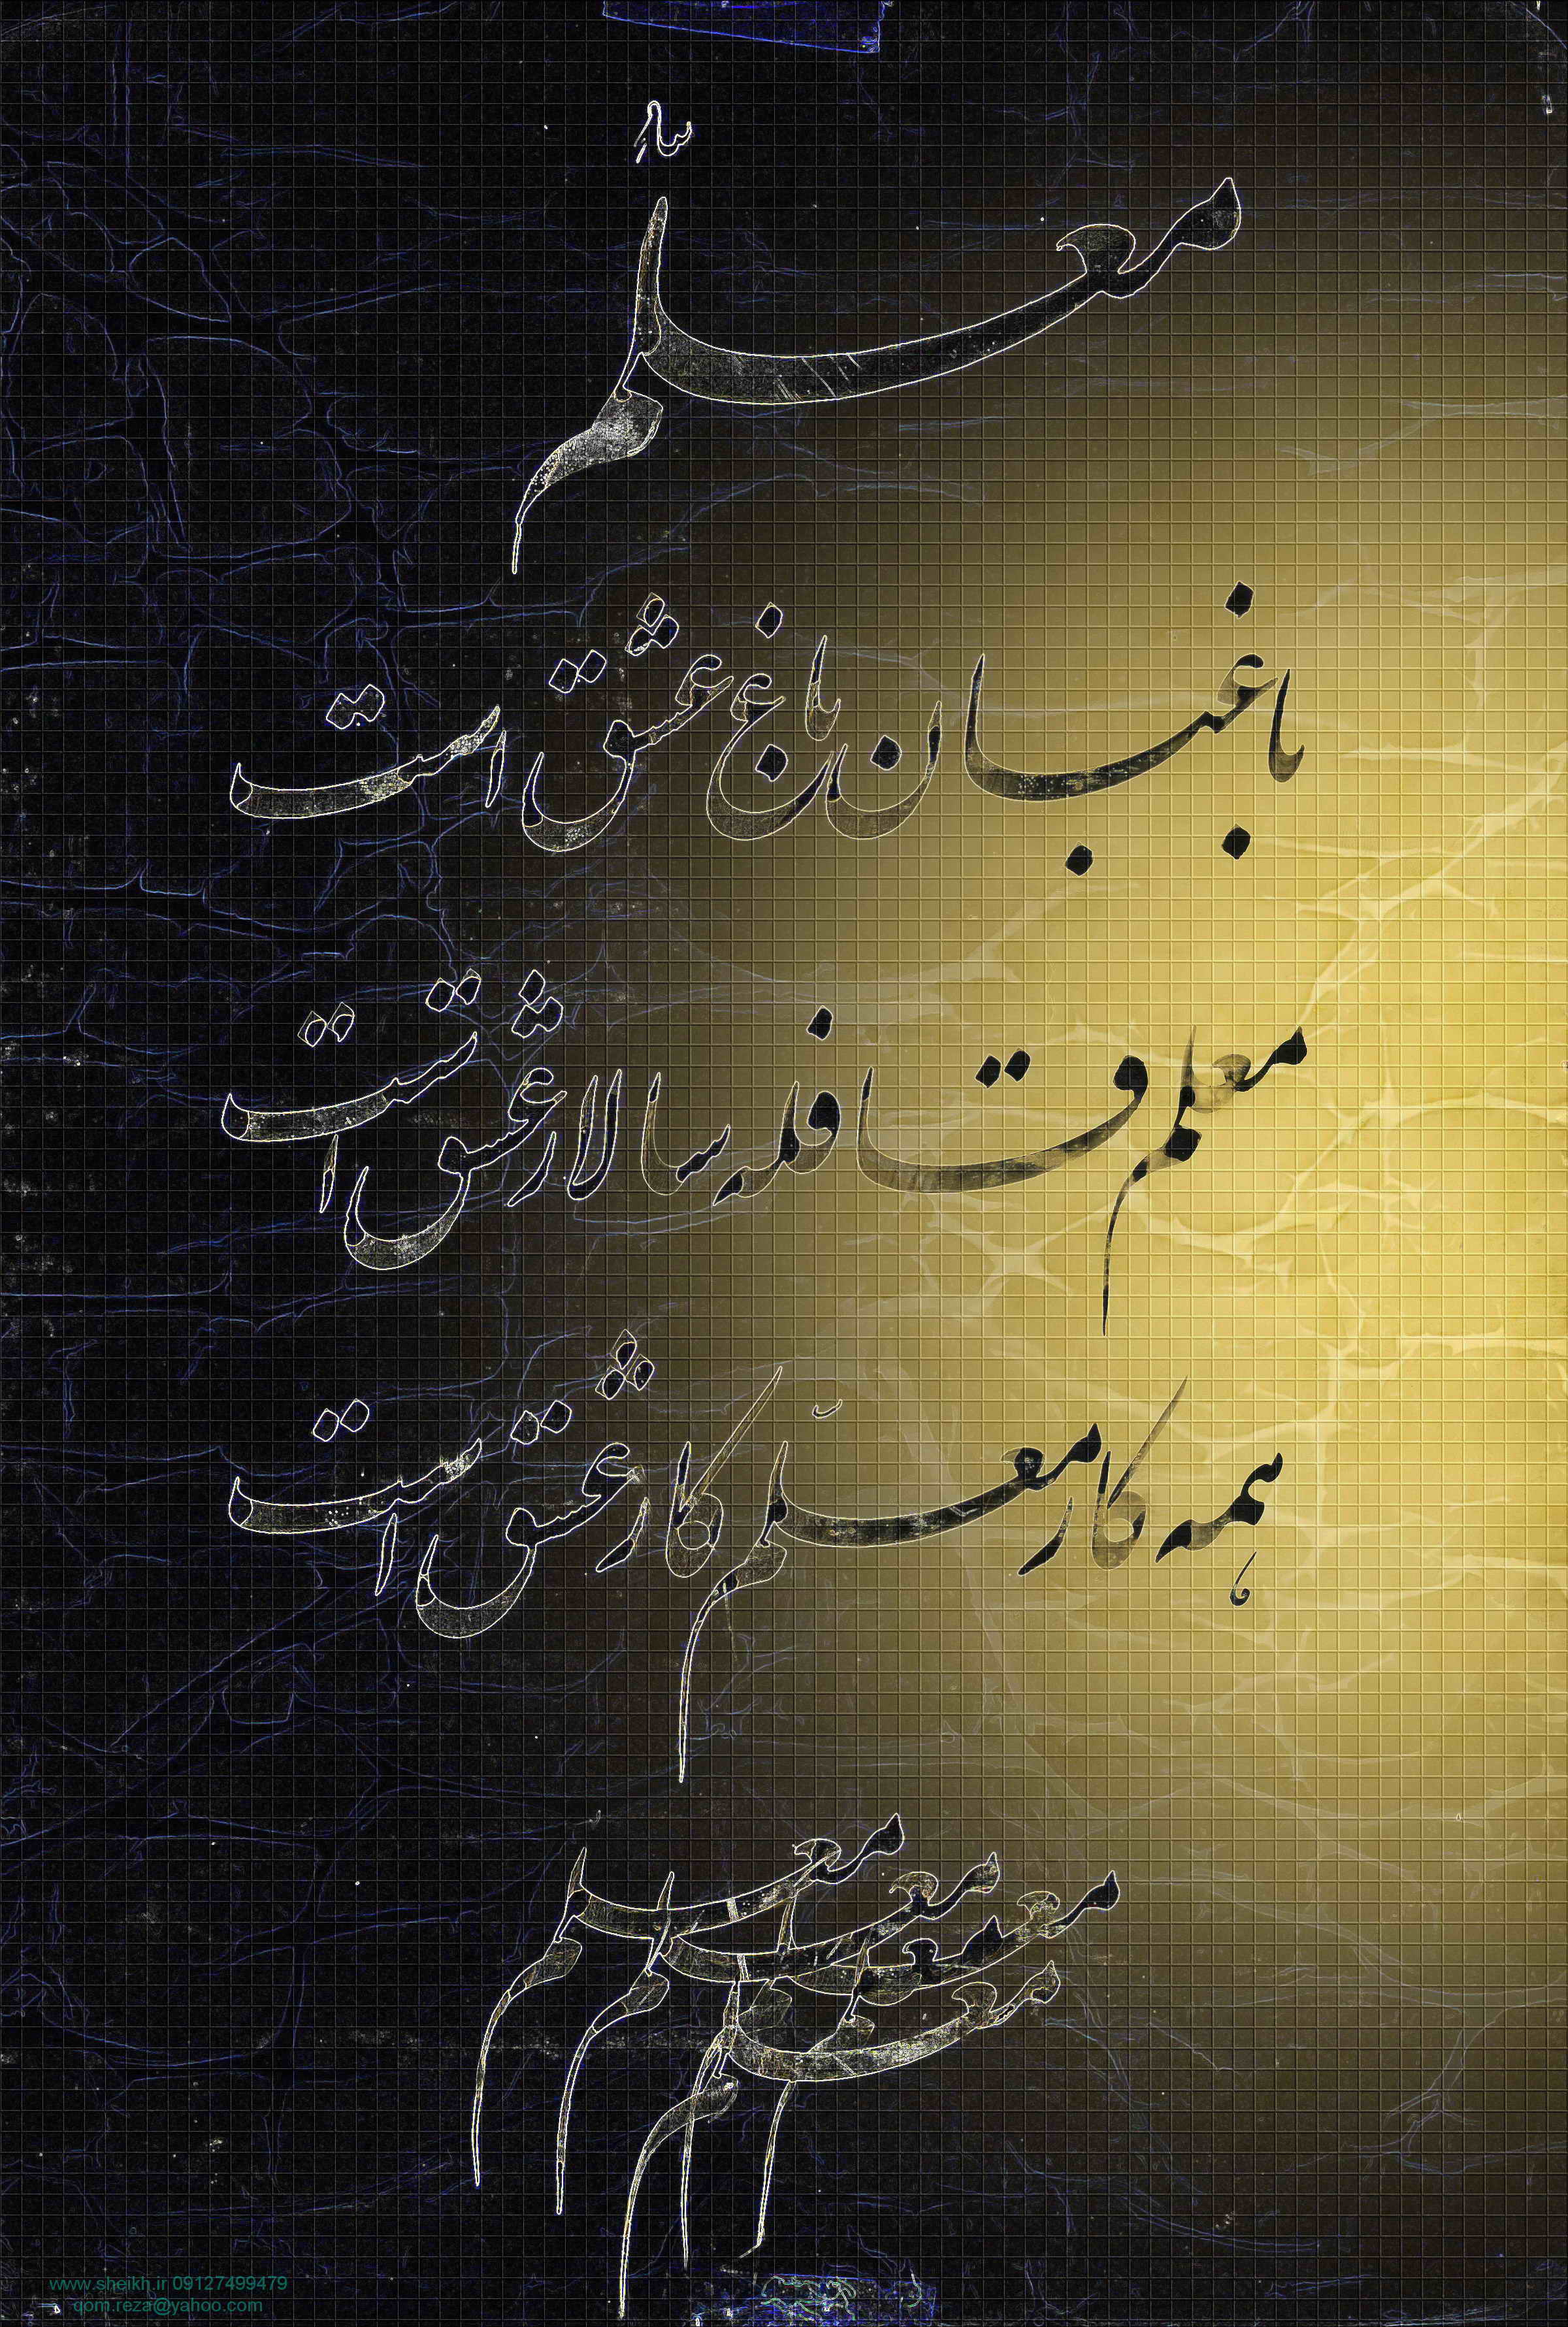 معلم
باغبان باغ عشق است
معلم قافله سالار عشق است
همه کار معلّم کار عشق است
معلم معلم معلم معلم معلم
www.sheikh.ir 09127499479
qom.reza@yahoo.com